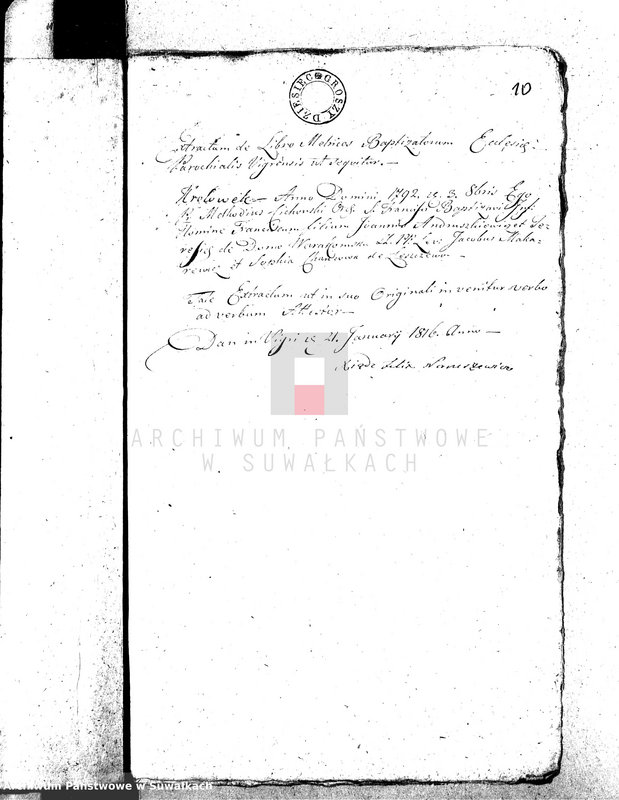 DZIESIĘĆ GROSZY
10
Extractum de Libro Metrices Baptizatorum Ecclesię
Parochialis Vigrensis ut sequitur. —
Krolowek — Anno Domini 1792. d. 3. 8bris Ego
P. Methodius Cichorski Ord. S. Francisci Baptizavi Inf.
Nomine Franciscum filium Joannis Andruszkiewicz et
de Domo L. PP. Jacobus Maka-
rewicz et Sophia de Leszczewo —
Tale Extractum ut in suo Originali invenitur verbo
ad verbum Attestor —
Dan in Vigri d. 21. January 1816. Anno —
Xiądz Felix Naruszewicz
ARCHIWUM PAŃSTWOWE
W SUWAŁKACH
Archiwum Państwowe w Suwałkach